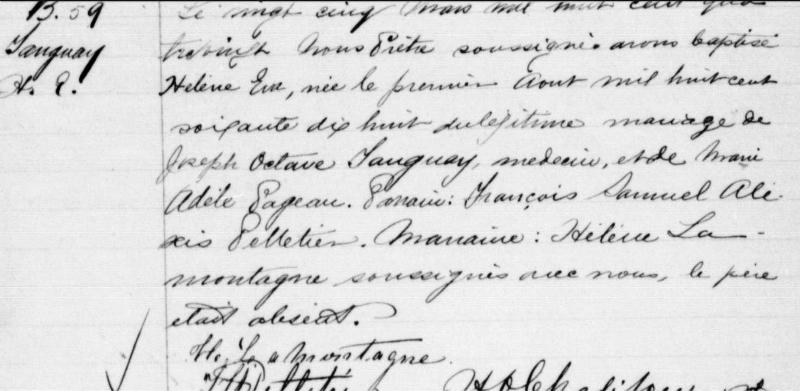 B. 59
Tanguay
H. E.
Le vingt cinq Mars mil huit cent qua
trevingt Nous Prêtre soussigné avons baptisé
Helène Eva, née le premier Aout mil huit cent
soixante dix huit du légitime mariage de
Joseph Octave Tanguay, medecin, et de Marie
Adèle Pageau. Parrain: François Samuel Ale
xis Pelletier. Marraine: Hélène La-
montagne soussignés avec nous, le père
était absent.
H. Lamontagne
Pelletier